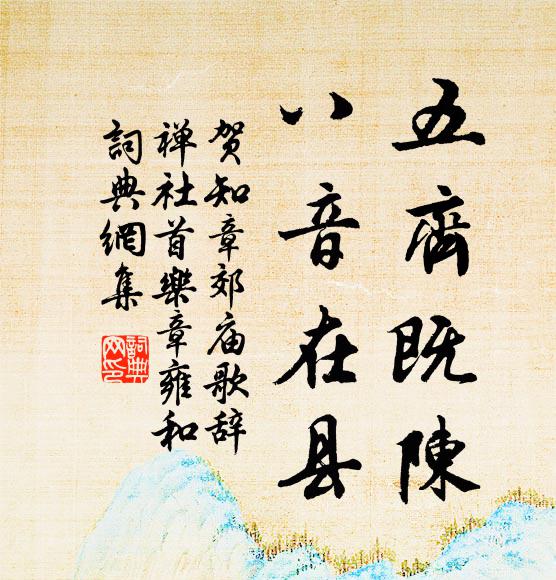 五齊既陳
八音在县
贺知章郊庙歌辞
禅社首樂章雍和
詞典網集
詞典
网印